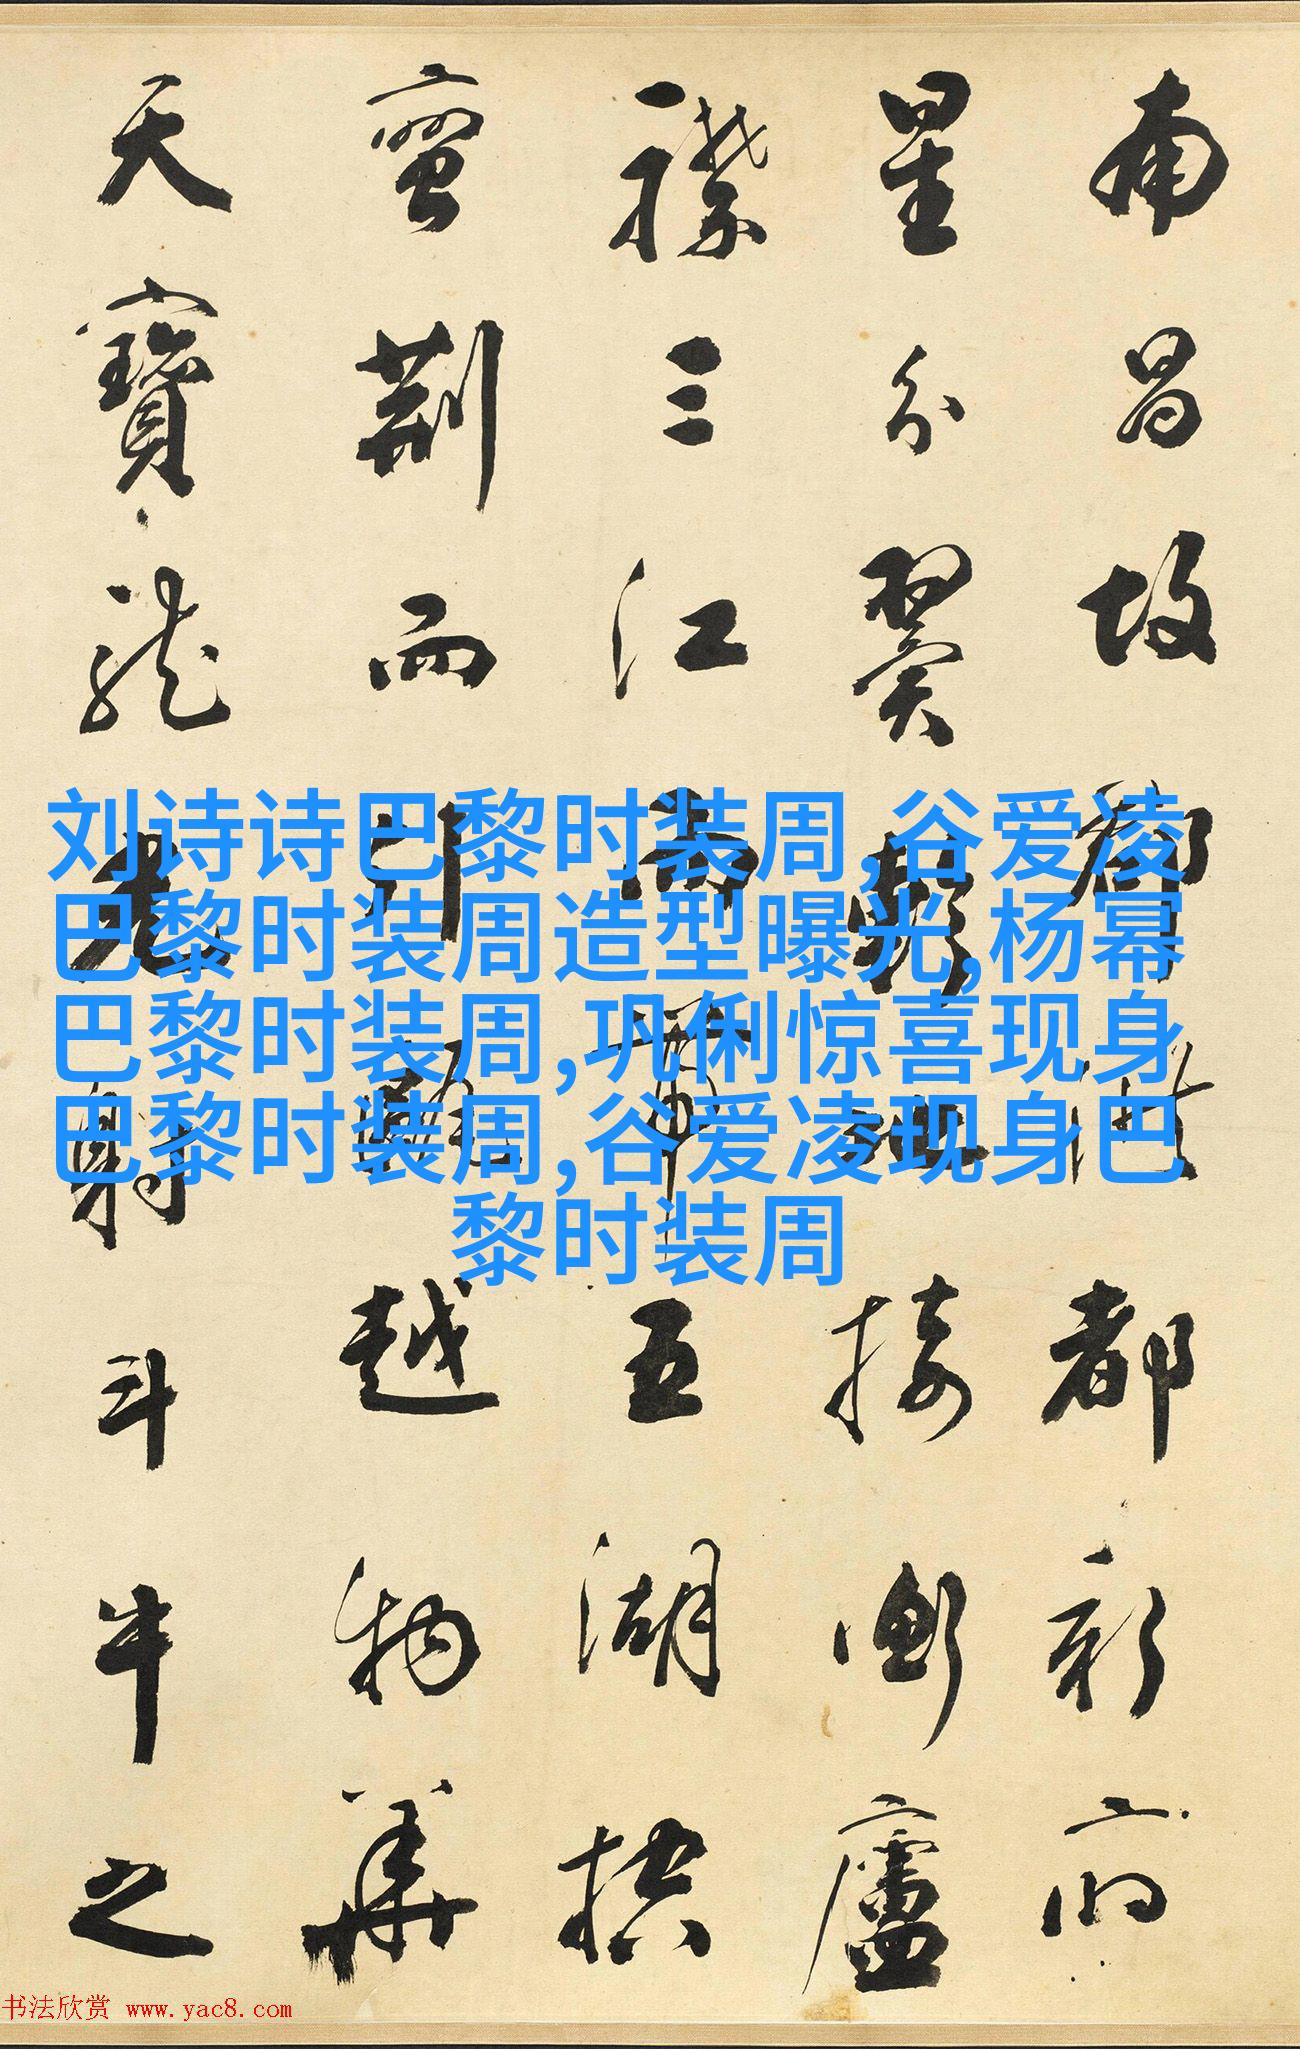 南昌故郡洪都新府
星分翼軫地接衡廬
襟三江而帶五湖控
蠻荊而引甌越物華
天寶龍光射斗牛之
刘诗诗巴黎时装周,谷爱凌
巴黎时装周造型曝光,杨幂
巴黎时装周,巩俐惊喜现身
巴黎时装周,谷爱凌现身巴
黎时装周
书法欣赏 www.yac8.com